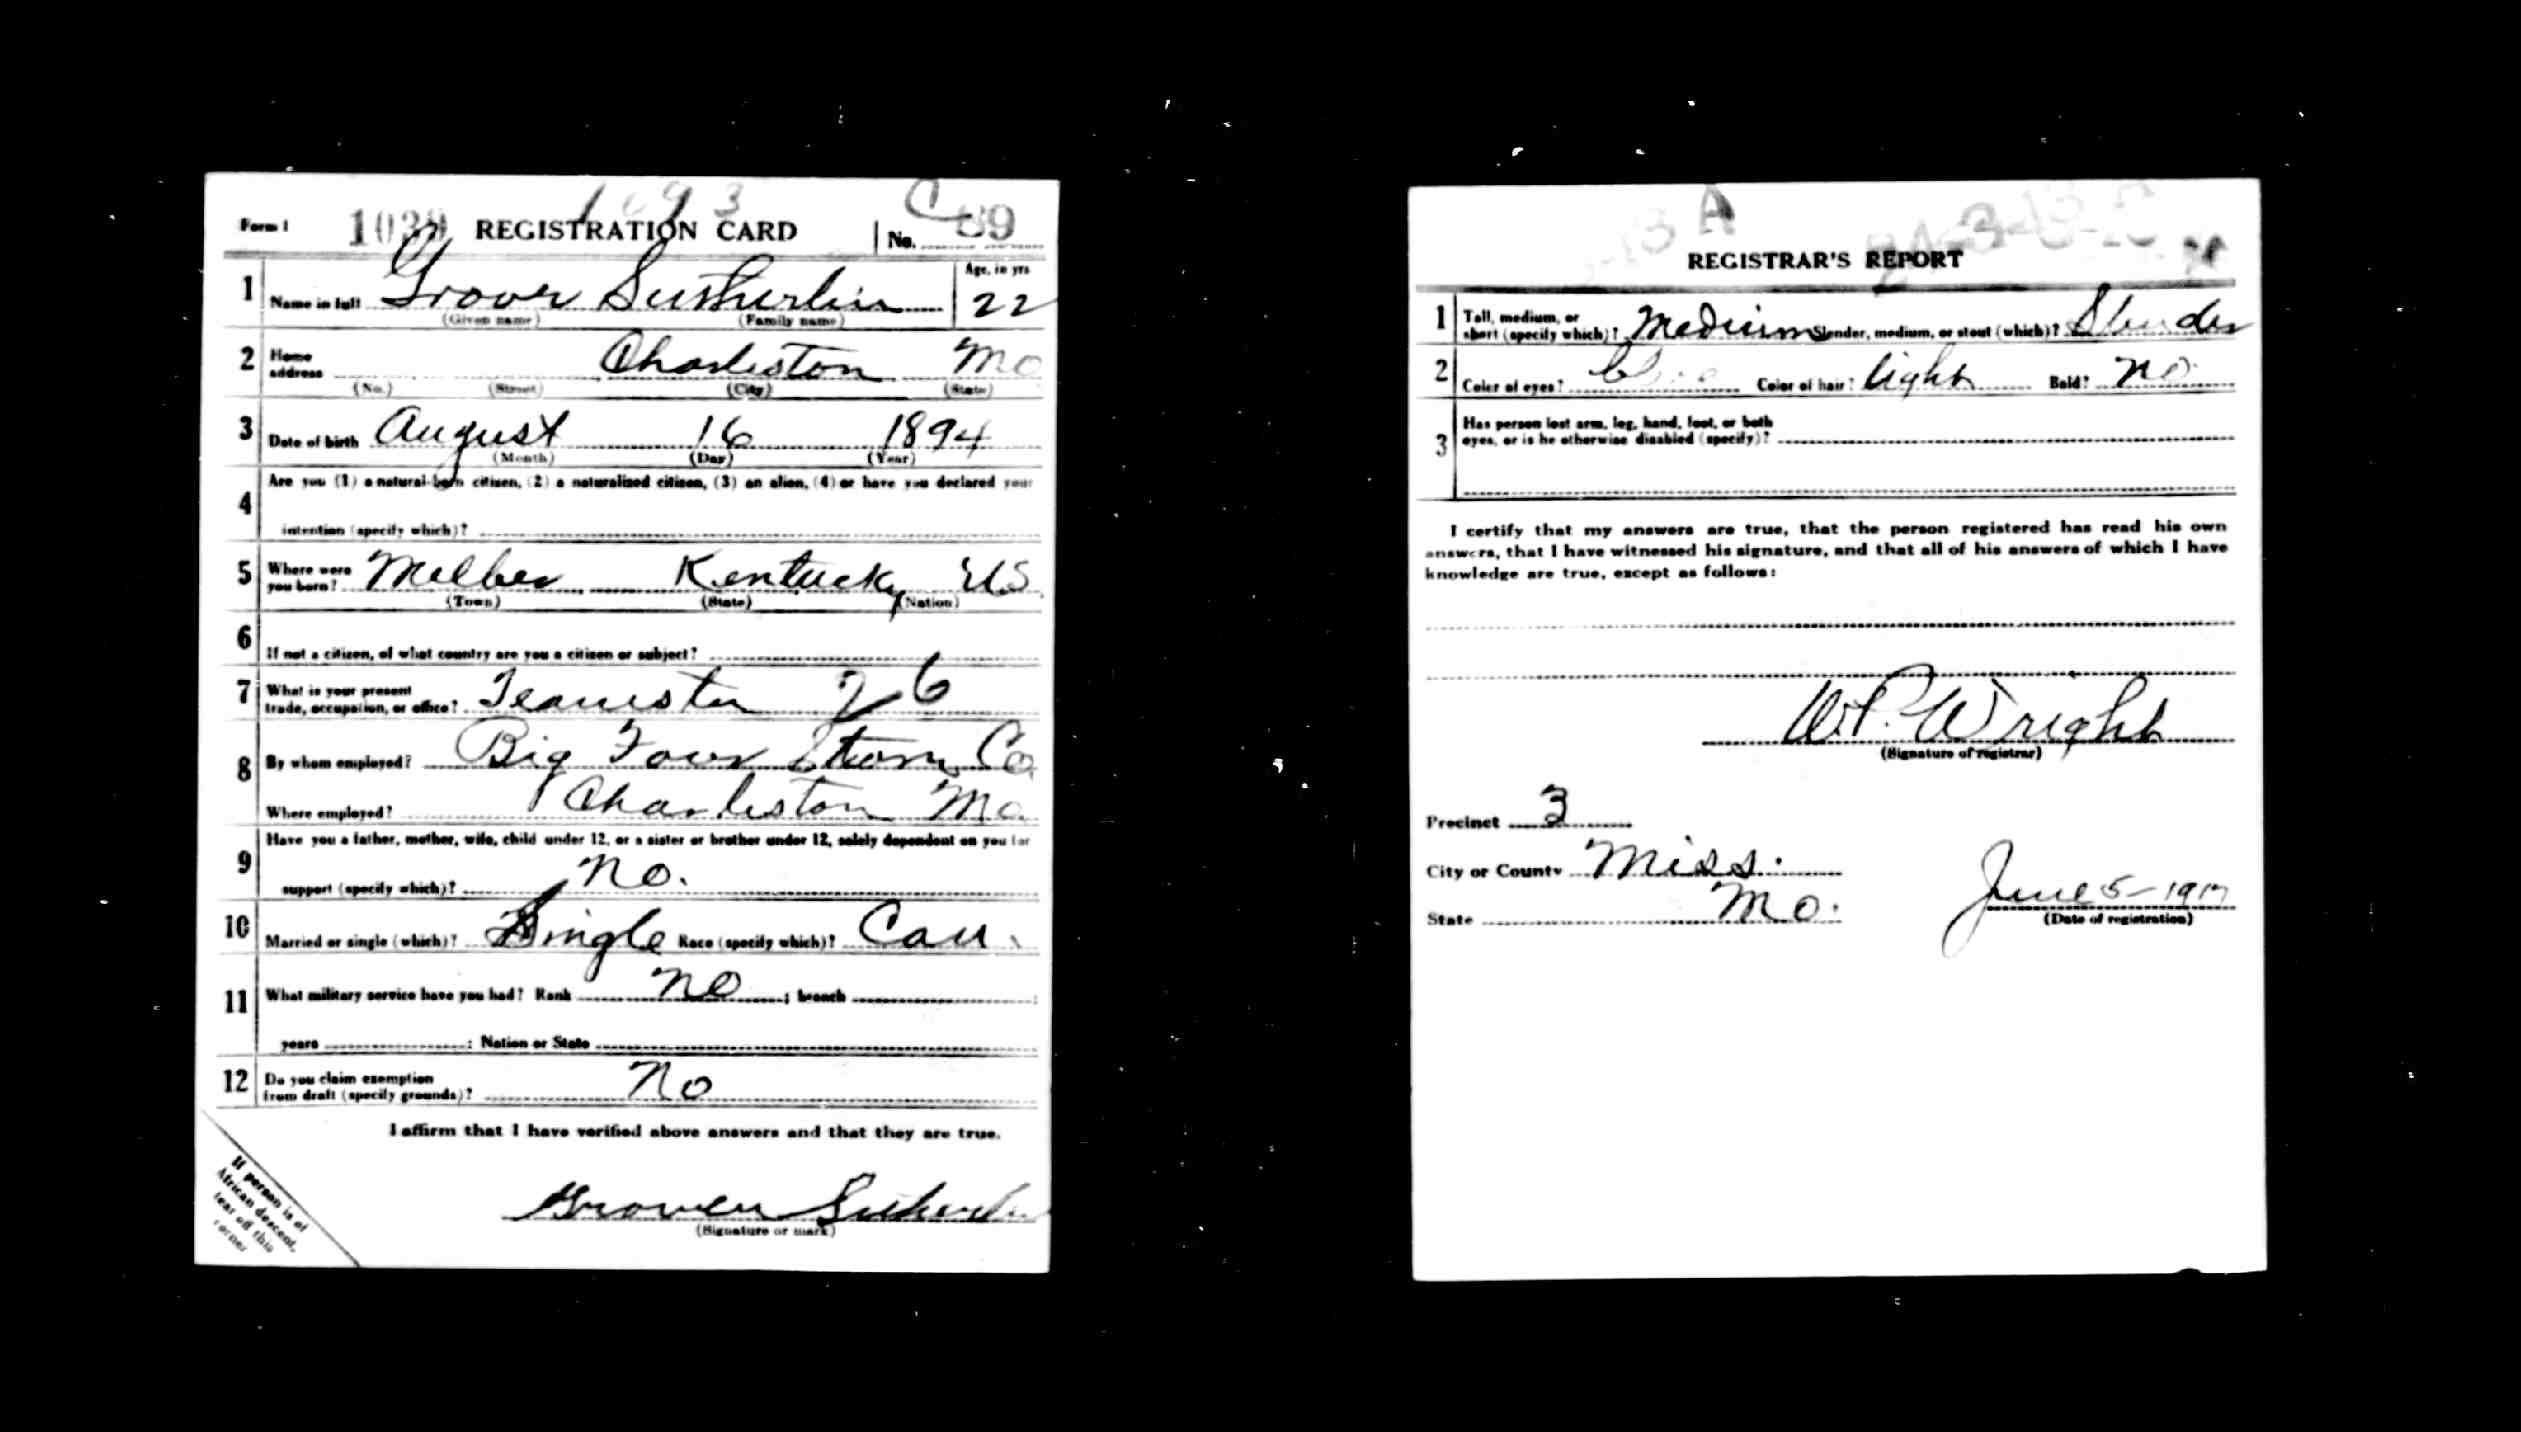 1093
Form 1 1039 REGISTRATION CARD No. C 89
1 Name in full Grover Sutherlin Age, in yrs 22
(Given name) (Family name)
2 Home address Charleston Mo
(No.) (Street) (City) (State)
3 Date of birth August 16 1894
(Month) (Day) (Year)
4 Are you (1) a natural-born citizen, (2) a naturalized citizen, (3) an alien, (4) or have you declared your
intention (specify which)?
5 Where were you born? Melber Kentucky US
(Town) (State) (Nation)
6 If not a citizen, of what country are you a citizen or subject?
7 What is your present trade, occupation, or office? Teamster 26
8 By whom employed? Big Four Co
Where employed? Charleston Mo.
9 Have you a father, mother, wife, child under 12, or a sister or brother under 12, solely dependent on you for
support (specify which)? No.
10 Married or single (which)? Single Race (specify which)? Cau.
11 What military service have you had? Rank no ; branch ;
years ; Nation or State
12 Do you claim exemption from draft (specify grounds)? No
I affirm that I have verified above answers and that they are true.
Grover Sutherlin
(Signature or mark)
If person is of
African descent,
tear off this
corner
A
REGISTRAR'S REPORT
1 Tall, medium, or short (specify which)? Medium Slender, medium, or stout (which)? Slender
2 Color of eyes? Color of hair? light Bald? no
3 Has person lost arm, leg, hand, foot, or both
eyes, or is he otherwise disabled (specify)?
I certify that my answers are true, that the person registered has read his own
answers, that I have witnessed his signature, and that all of his answers of which I have
knowledge are true, except as follows:
W.P. Wright
(Signature of registrar)
Precinct 3
City or County Miss.
State Mo. June 5-1917
(Date of registration)